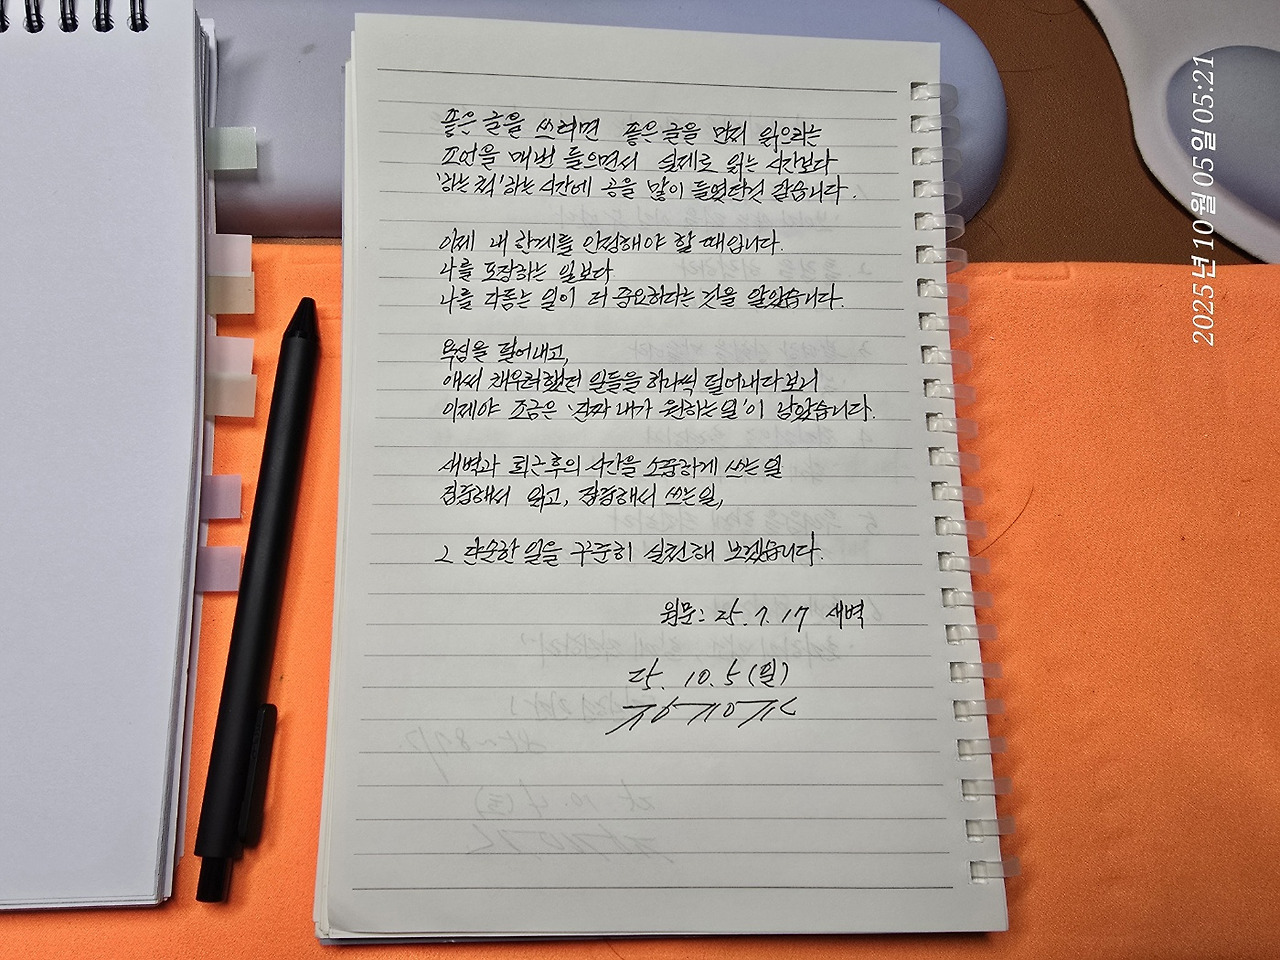 좋은 글을 쓰려면 좋은 글을 먼저 읽으라는
조언을 매번 들으면서 실제로 읽는 시간보다
'하는 척'하는 시간에 공을 많이 들였던것 같습니다.
이제 내 한계를 인정해야 할 때입니다.
나를 포장하는 일보다
나를 다듬는 일이 더 중요하다는 것을 알았습니다.
욕심을 덜어내고,
애써 채우려했던 일들을 하나씩 덜어내다보니
이제야 조금은 '진짜 내가 원하는 일'이 남았습니다.
새벽과 퇴근후의 시간을 소중하게 쓰는 일
집중해서 읽고, 집중해서 쓰는 일,
그 단순한 일을 꾸준히 실천해 보겠습니다.
원문: 25. 7. 17 새벽
25. 10. 5 (일)
2025년 10월 05일 05:21